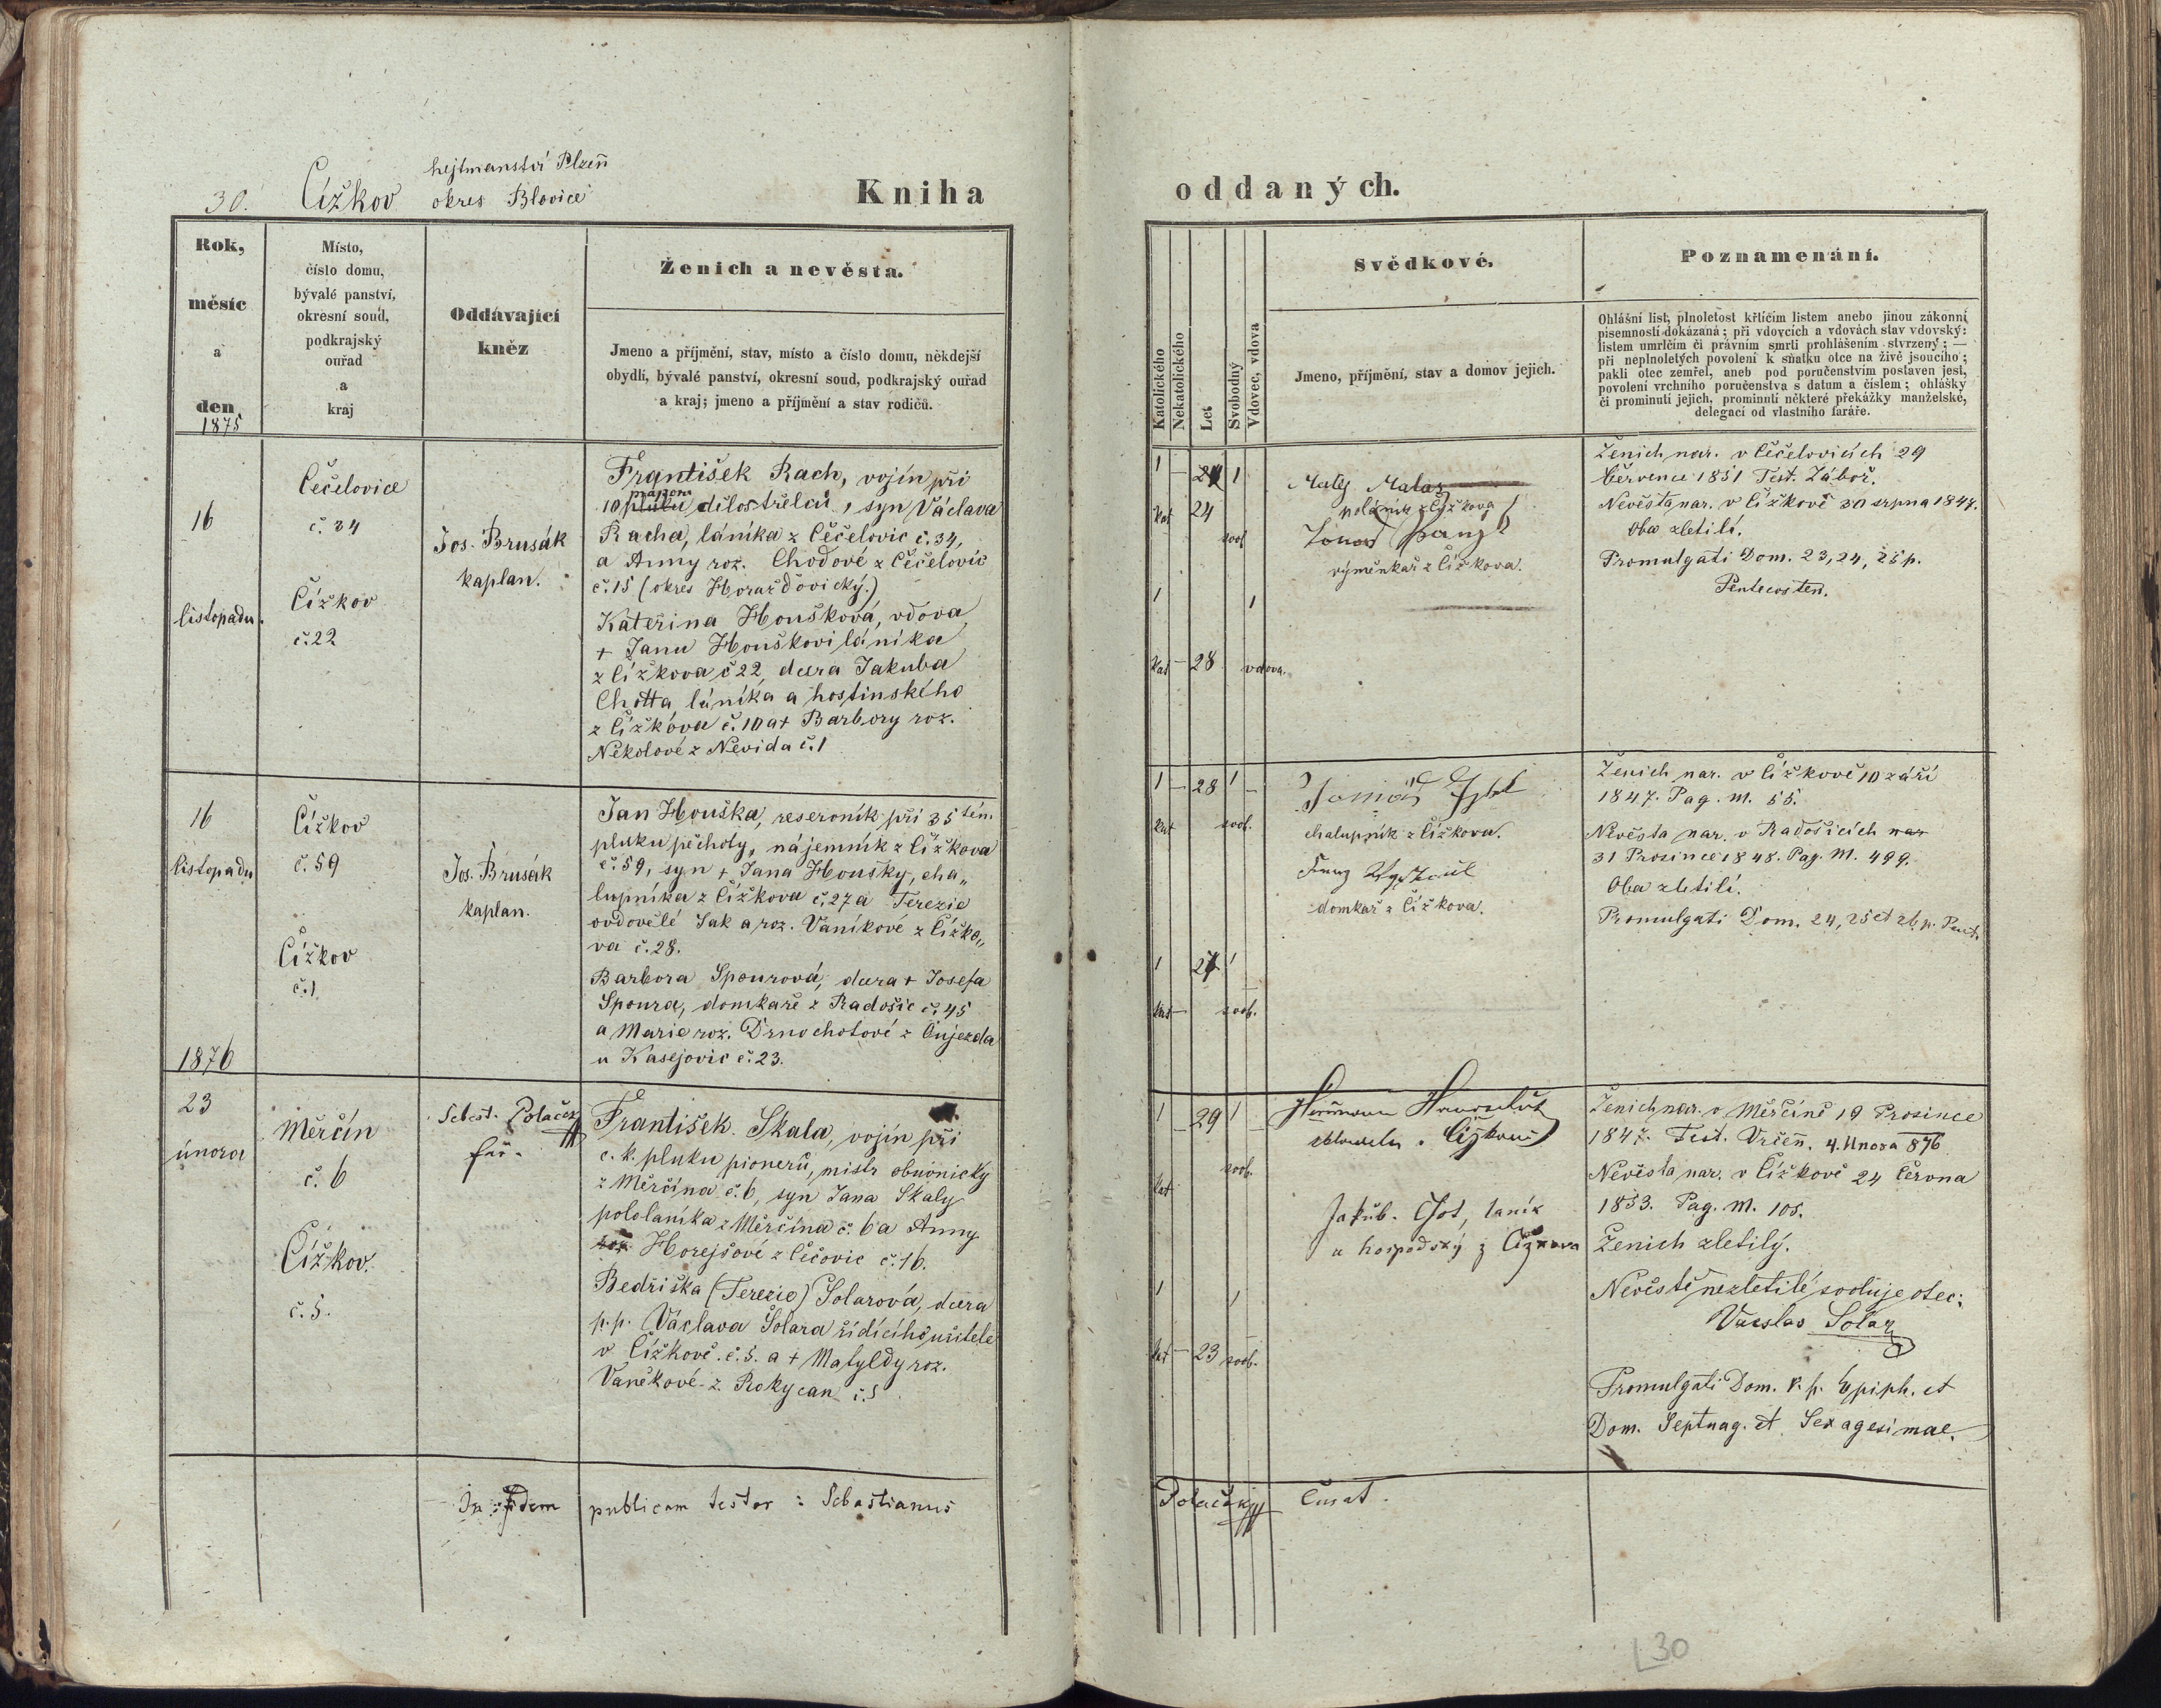 30. Čížkov
hejtmanství Plzeň
okres Blovice
Kniha
Rok,
měsíc
a
den
1875
Místo,
číslo domu,
bývalé panství,
okresní soud,
podkrajský
ouřad
a
kraj
Oddávající
kněz
Ženich a nevěsta.
Jmeno a příjmění, stav, místo a číslo domu, někdejší
obydlí, bývalé panství, okresní soud, podkrajský ouřad
a kraj; jmeno a příjmění a stav rodičů.
16
listopadu.
Čečelovice
č. 34
Čížkov
č. 22
Jos. Brusák
kaplan.
František Rach, vojín při
10 pluku dělostřelců, syn Václava
Racha, láníka z Čečelovic č. 34,
a Anny roz. Chodové z Čečelovic
č. 15 (okres Horažďovický.)
Kateřina Houšková, vdova
+ Janu Houškovi láníka
z Čížkova č 22, dcera Jakuba
Chotta láníka a hostinského
z Čížkova č. 10 a + Barbory roz.
Nekolové z Nevida č. 1
16
listopadu
Čížkov
č. 59
Čížkov
č. 1
Jos. Brusák
kaplan.
Jan Houška, reservník při 35 tém
pluku pěchoty, nájemník z Čížkova
č. 59, syn + Jana Houšky, cha„
lupníka z Čížkova č. 27 a Terezie
ovdovělé Jak a roz. Vaníkové z Čížko„
va č. 28.
Barbora Spourová, dcera + Josefa
Spoura, domkaře z Radošic č. 45
a Marie roz. Drnochotové z Oujezda
u Kasejovic č. 23.
1876
23
února
Měrčín
č. 6
Čížkov.
č. 5.
Sebest. Polaček
far.
František Skala, vojín při
c. k. pluku pionerů, mistr obuvnický
z Měrčína č. 6, syn Jana Skaly
pololaníka z Měrčína č. 6 a Anny
roz. Horejšové z Čečovic č. 16.
Bedřiška (Terezie) Solarová, dcera
p. p. Václava Solara řídícího učitele
v Čížkově č. 5. a + Matyldy roz.
Vaněkové z Rokycan č. 5
In fidem publicam testor: Sebastianus
oddaných.
Katolického
Nekatolického
Let
Svobodný
Vdovec, vdova
Svědkové.
Jmeno, příjmění, stav a domov jejich.
Poznamenání.
Ohlášní list, plnoletost křticím listem anebo jinou zákonní
písemností dokázaná; při vdovcích a vdovách stav vdovský:
listem umrlčím či právním smrti prohlášením stvrzený; —
při neplnoletých povolení k sňatku otce na živě jsoucího;
pakli otec zemřel, aneb pod poručenstvím postaven jest,
povolení vrchního poručenstva s datum a číslem; ohlášky
či prominutí jejich, prominutí některé překážky manželské,
delegací od vlastního faráře.
1 1
kat 24 svob
Malaz
z Čížkova
výměnkář z Čížkova.
1 1
kat 28 vdova.
Ženich nar. v Čečelovicích 29
července 1851 Test. Záboř.
Nevěsta nar. v Čížkově 30 srpna 1847.
Oba zletilí.
Promulgati Dom. 23, 24, 25 p.
Pentecosten.
1 28 1
kat svob.
chalupník z Čížkova.
domkář z Čížkova.
1 1
kat svob.
Ženich nar. v Čížkově 10 září
1847. Pag. M. 55.
Nevěsta nar. v Radošicích nar
31 Prosince 1848. Pag. M. 499.
Oba zletilí.
Promulgati Dom. 24, 25 et 26. p. Pent.
1 29 1
kat svob.
v Čížkově
Jakub Chot, laník
a hospodský z Čížkova
1 1
kat 23 svob.
Ženich nar. v Měrčíně 19 Prosince
1847. Test. Vrčeň. 4. Unora 876
Nevěsta nar. v Čížkově 24 Června
1853. Pag. M. 105.
Ženich zletilý.
Nevěstě nezletilé svoluje otec:
Václav Solar
Promulgati Dom. V. p. Epiph. et
Dom. Septuag. et Sexagesimae.
Polaček Curat.
30